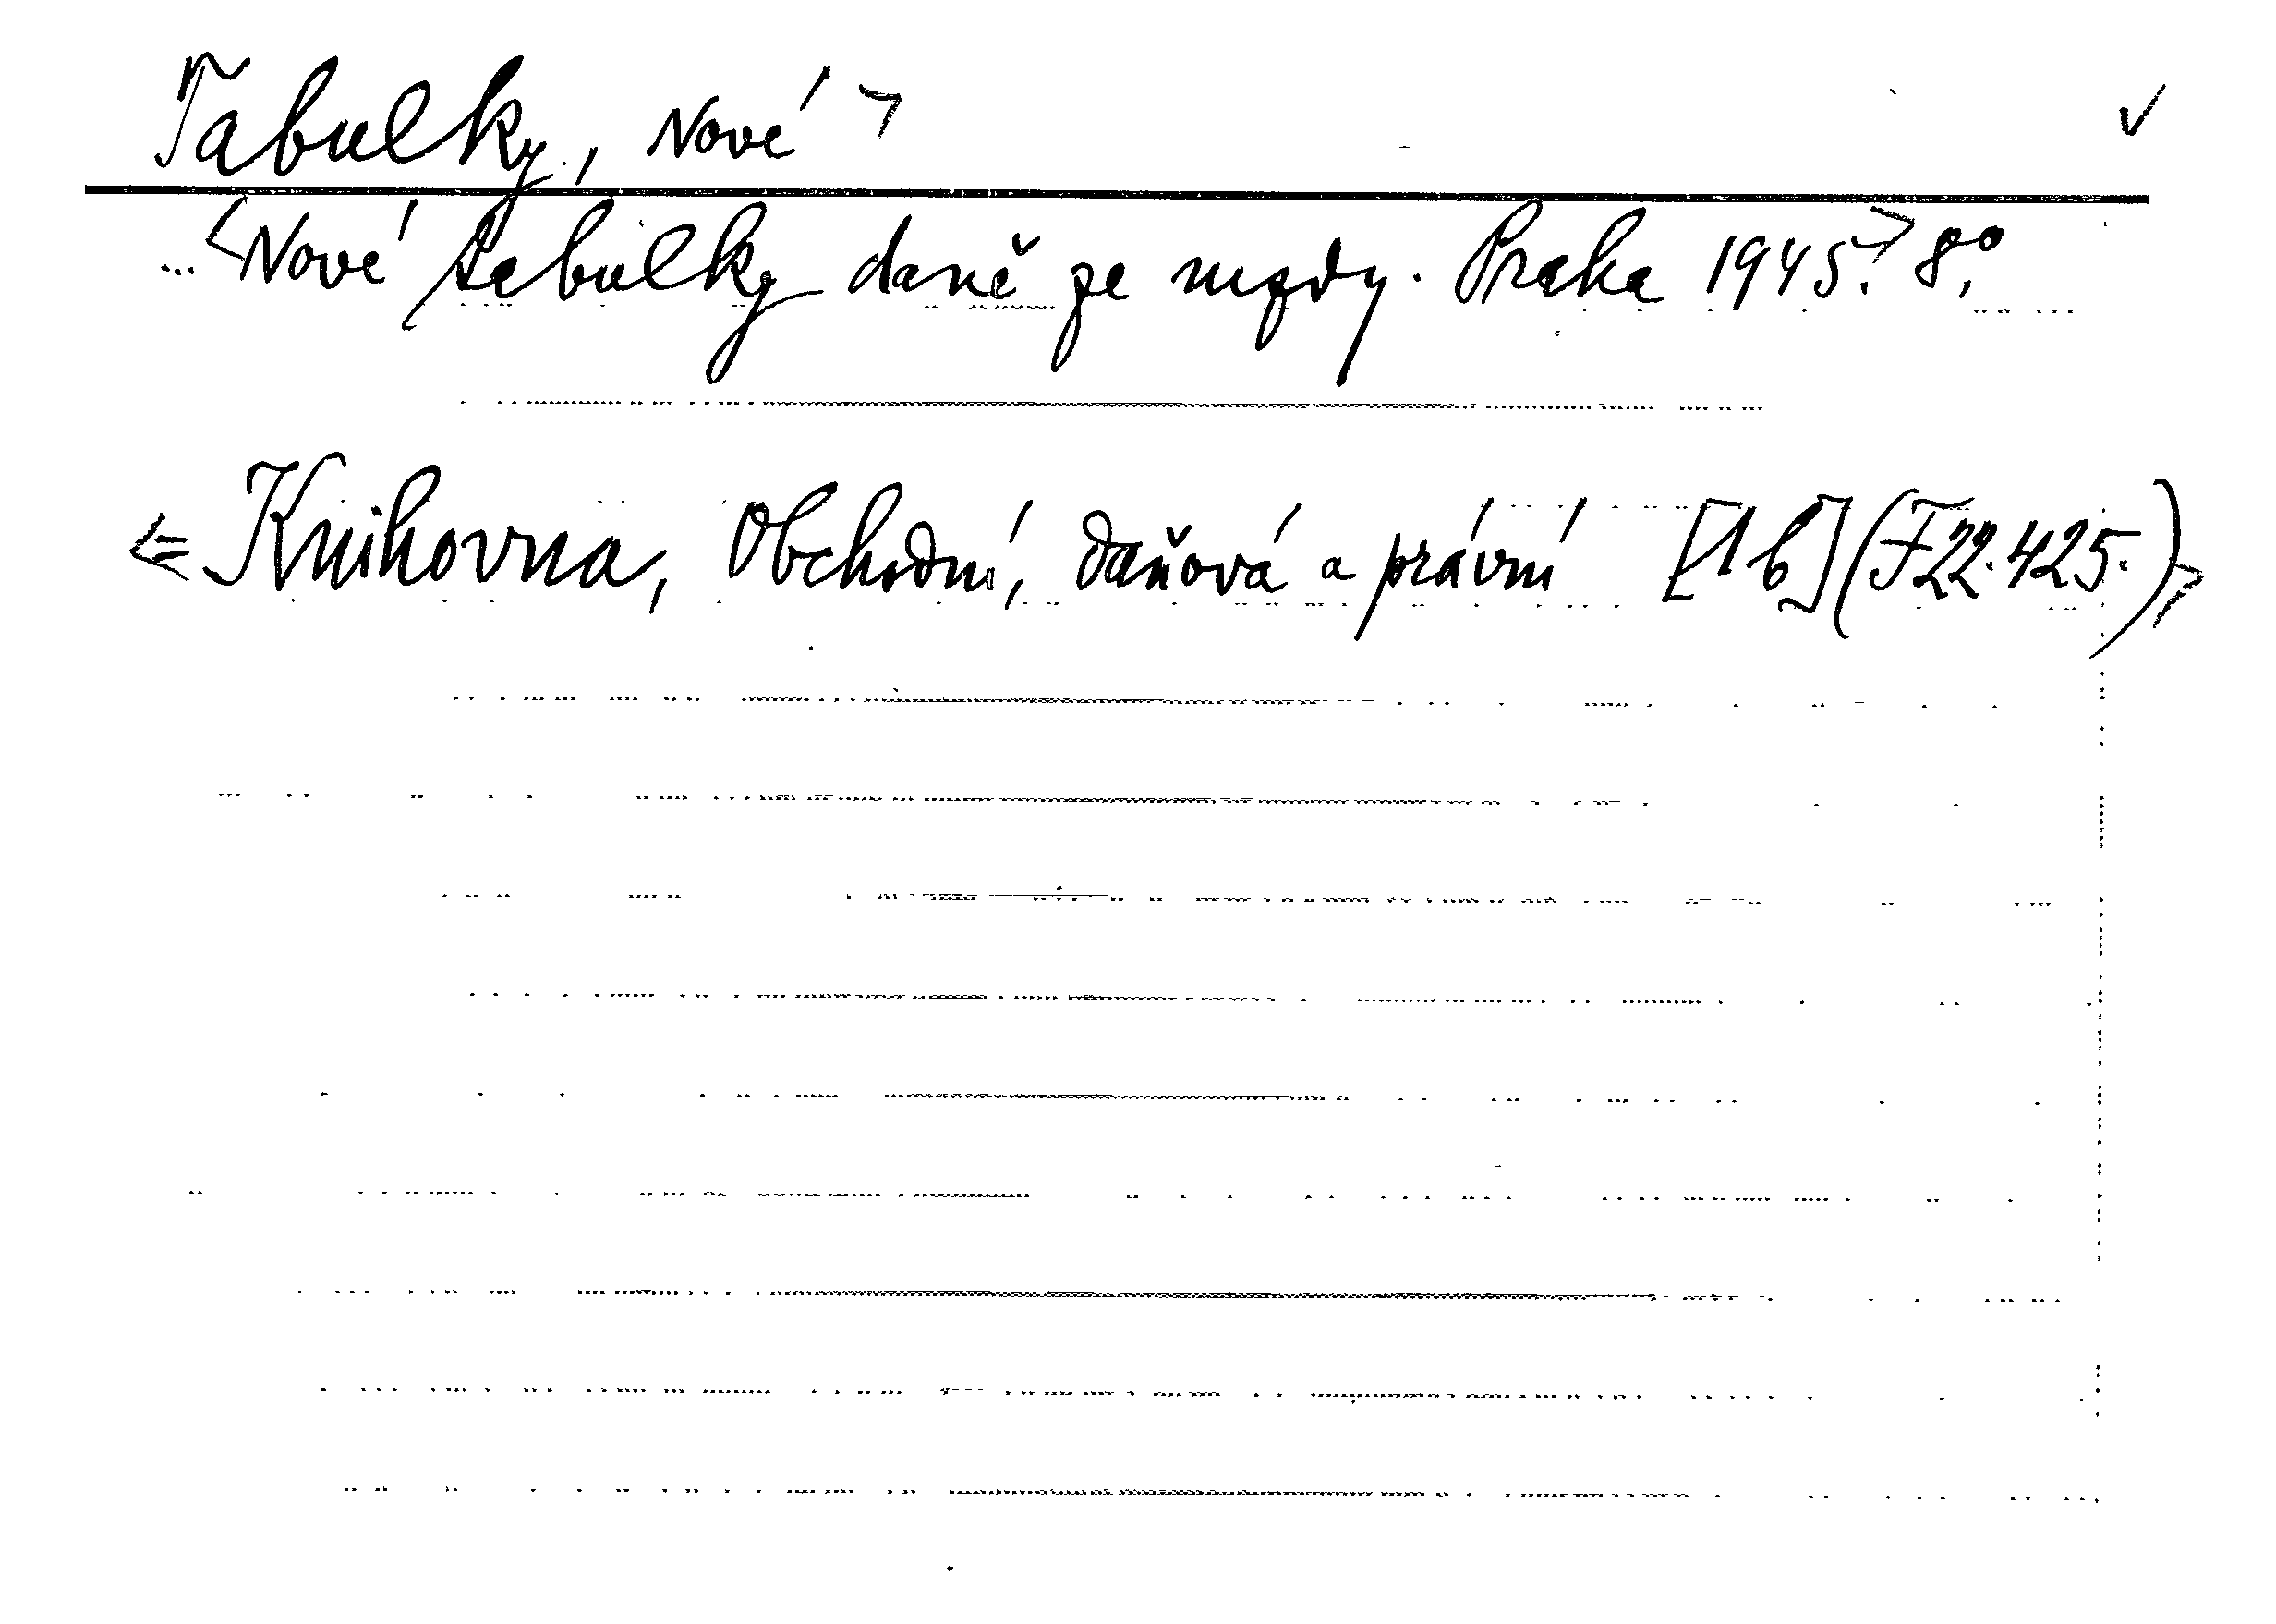 Tabulky, Nové > ✓
<Nové tabulky daně ze mzdy. Praha 1945.> 8°.
<= Knihovna, Obchodní, daňová a právní [1b] (F22.425.)>